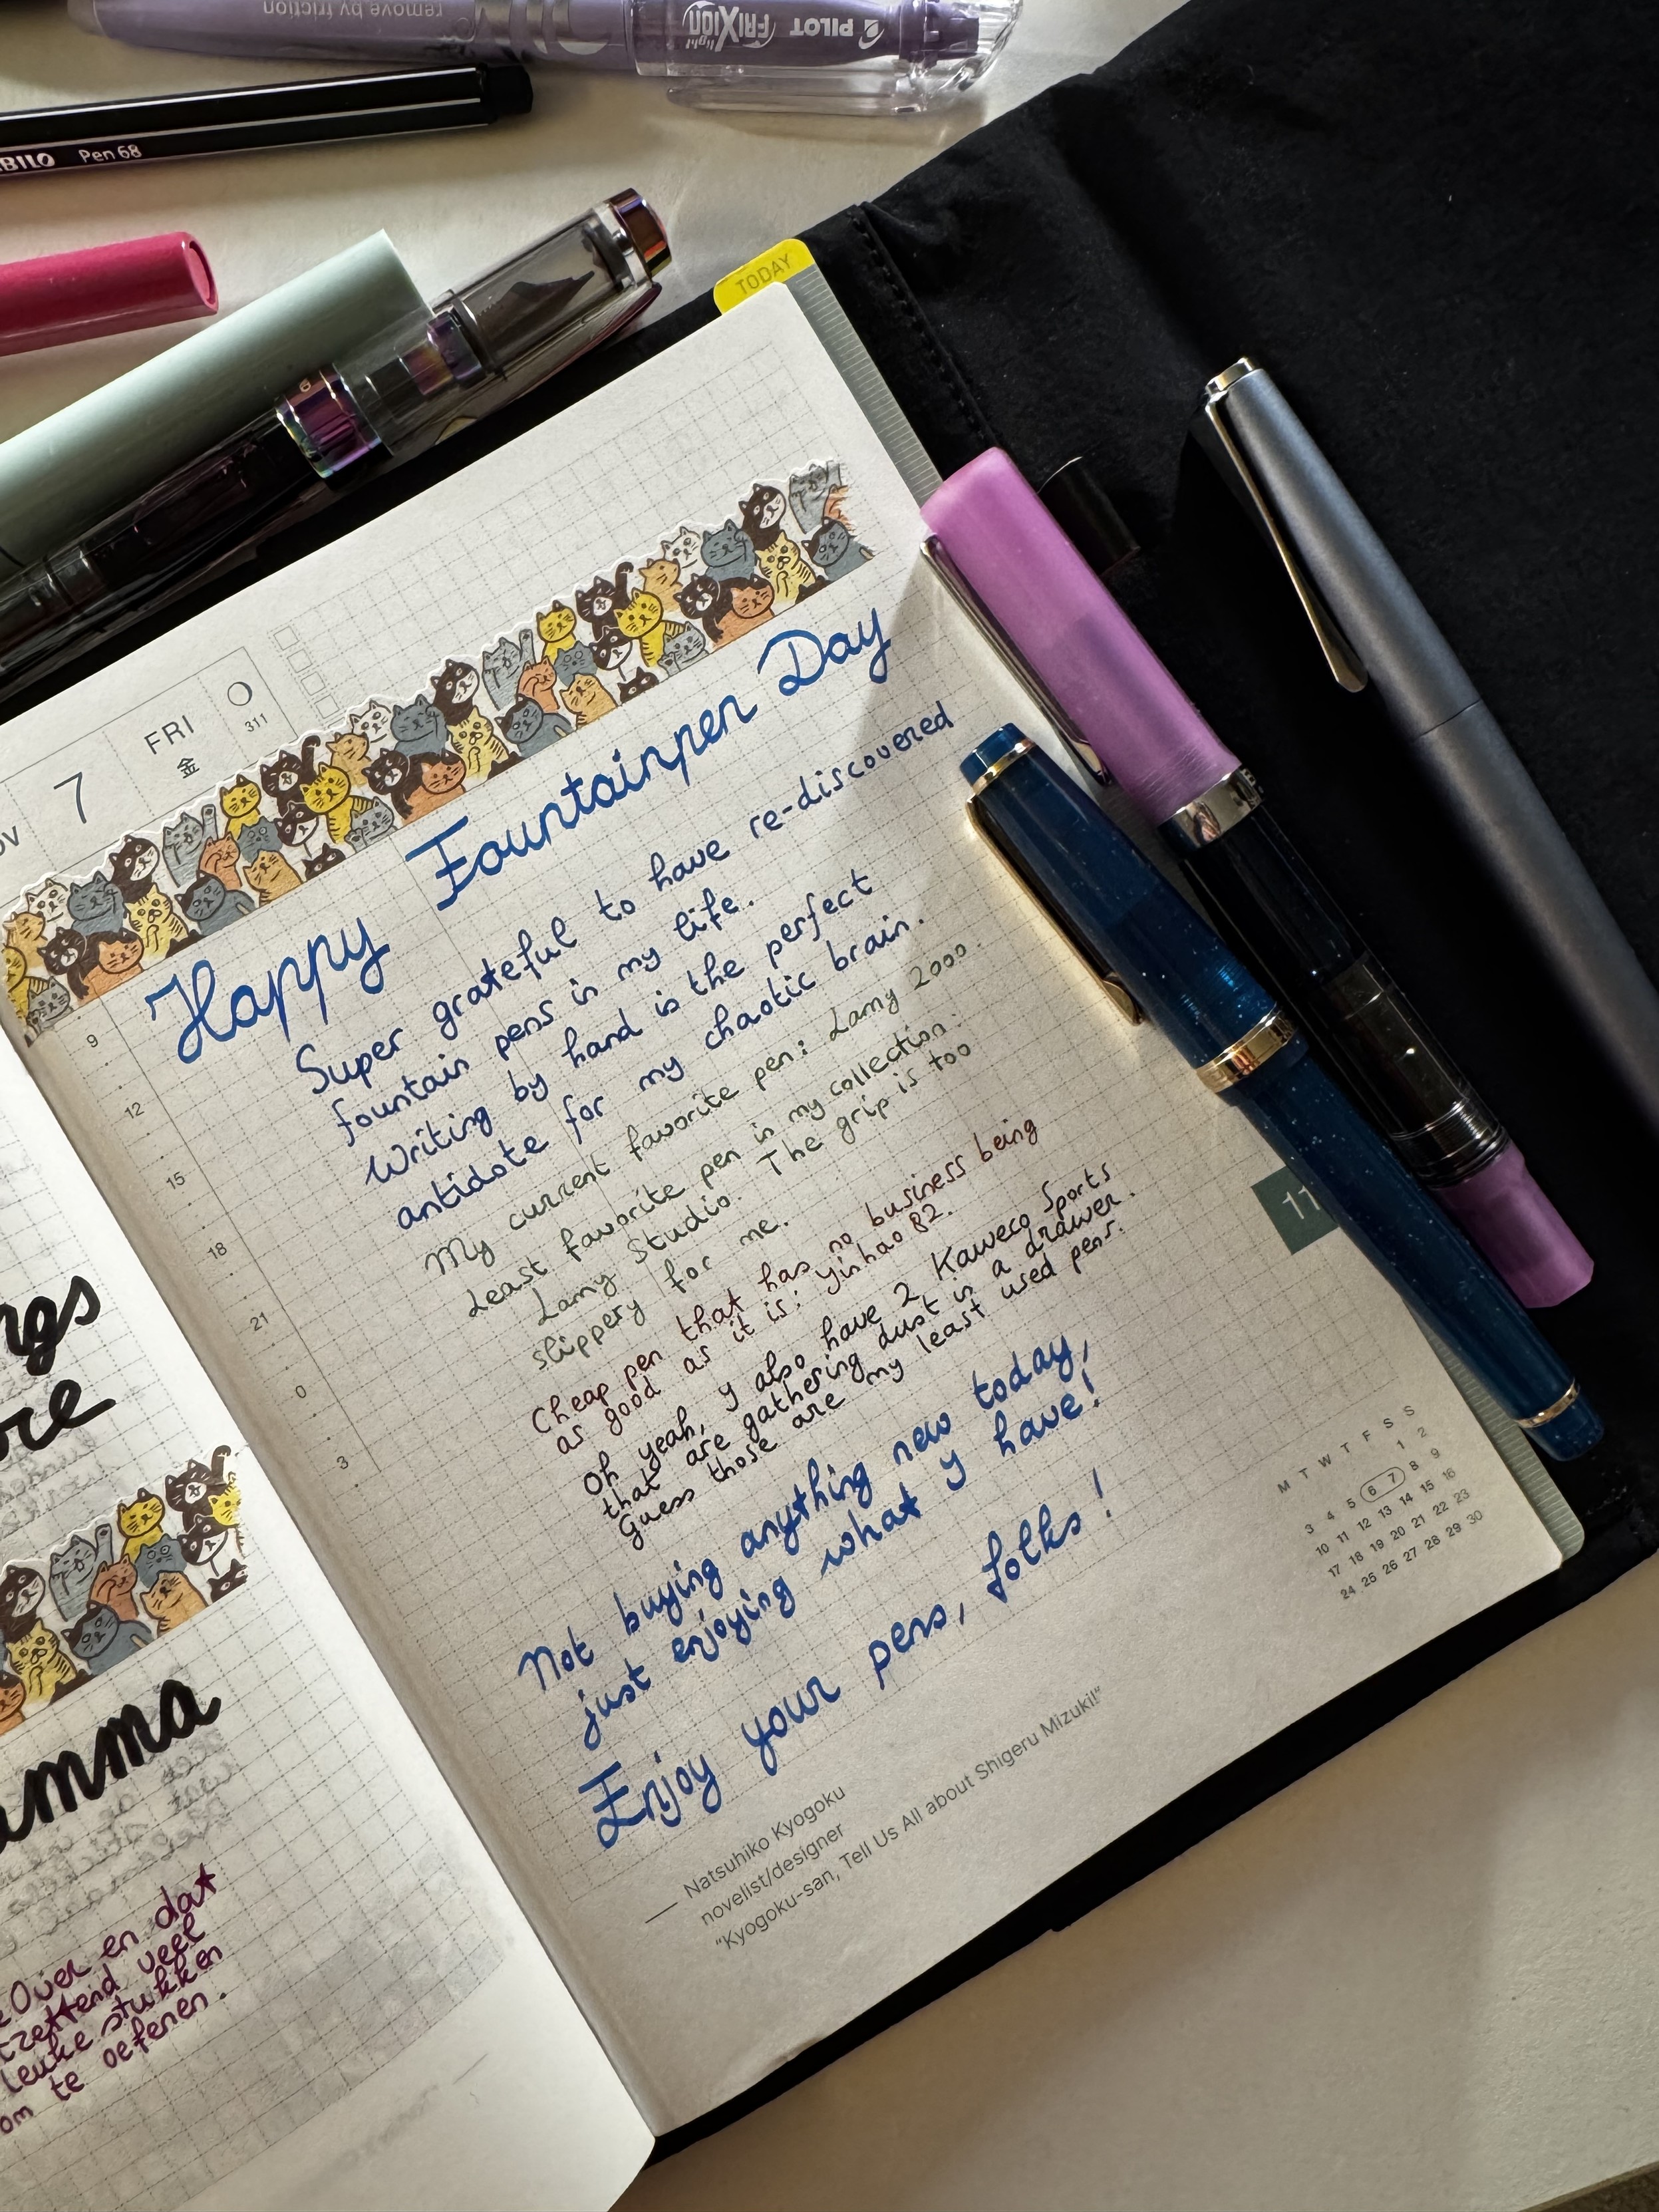 remove by friction
PILOT FRIXION light
BILO Pen 68
TODAY
7
FRI
金
311
Happy Fountainpen Day
9
12
15
18
21
0
3
Super grateful to have re-discovered
fountain pens in my life.
Writing by hand is the perfect
antidote for my chaotic brain.
My current favorite pen: Lamy 2000.
Least favorite pen in my collection:
Lamy Studio. The grip is too
slippery for me.
Cheap pen that has no business being
as good as it is: Yinhao 82.
Oh yeah, y also have 2 Kaweco Sports
that are gathering dust in a drawer.
Guess those are my least used pens.
Not buying anything new today,
just enjoying what y have!
Enjoy your pens, folks!
11
M T W T F S S
1 2
3 4 5 6 7 8 9
10 11 12 13 14 15 16
17 18 19 20 21 22 23
24 25 26 27 28 29 30
— Natsuhiko Kyogoku
novelist/designer
"Kyogoku-san, Tell Us All about Shigeru Mizuki!"
over en dat
veel
leuke stukken
om te oefenen.